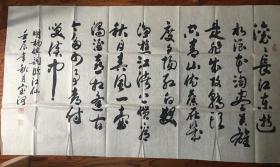 滚〻长江东逝
水浪花淘尽英雄
是非成败转头
空青山依旧在几
度夕阳红白发
渔樵江渚上惯看
秋月春风一壶
浊酒喜相逢古
今多少事都付
笑谈中
明杨慎词临江仙
壬辰年秋月